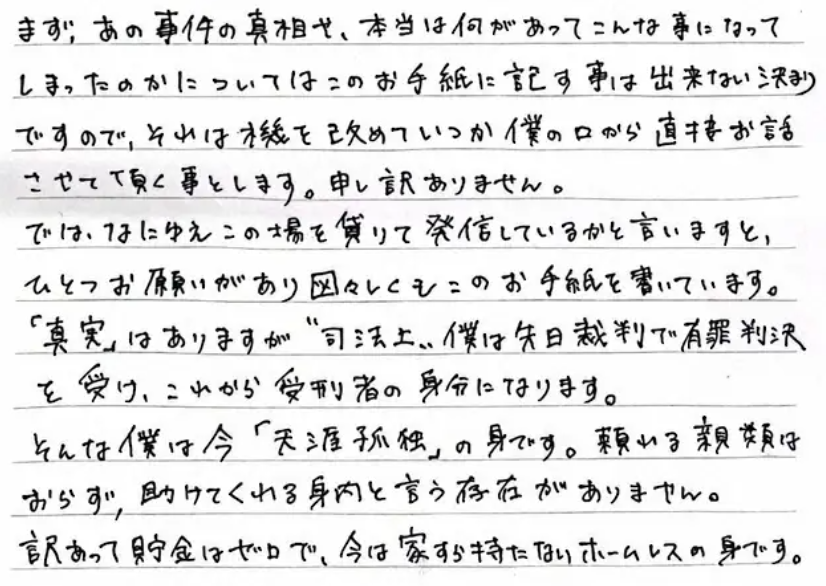 まず、あの事件の真相や、本当は何があってこんな事になって
しまったのかについてはこのお手紙に記す事は出来ない決まり
ですので、それは機を改めていつか僕の口から直接お話
させて頂く事とします。申し訳ありません。
では、なにゆえこの場を貸りて発信しているかと言いますと、
ひとつお願いがあり図々しくもこのお手紙を書いています。
「真実」はありますが〝司法上〟僕は先日裁判で有罪判決
を受け、これから受刑者の身分になります。
そんな僕は今「天涯孤独」の身です。頼れる親類は
おらず、助けてくれる身内と言う存在がありません。
訳あって貯金はゼロで、今は家すら持たないホームレスの身です。